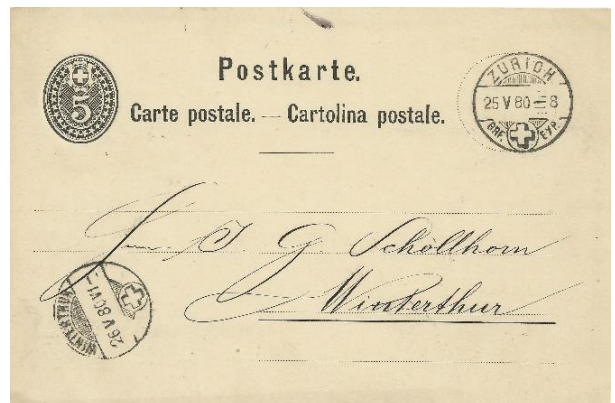 5
Postkarte.
Carte postale. — Cartolina postale.
ZÜRICH
25 V 80 8
BRF. EXP.
J. G. Schollhorn
Winterthur
WINTERTHUR
26 V 80 VI